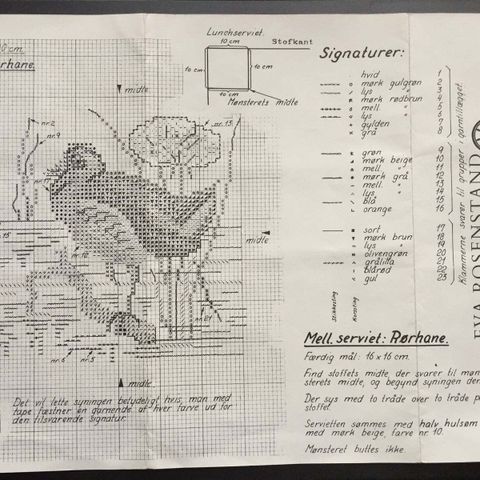 0 cm.
rhane.
Lunchserviet.
10 cm
Stofkant
10 cm
10 cm
10 cm
Mønsterets midte
midte
nr. 2
nr. 9
nr. 13
nr. 12
midte
nr. 21
nr. 6
nr. 5
midte
Det vil lette syningen betydeligt hvis, man med
tape fæstner en garnende af hver farve ud for
den tilsvarende signatur.
Signaturer:
hvid 1
mørk gulgrøn 2
lys " 3
mørk rødbrun 4
mell. " 5
lys " 6
gylden 7
grå 8
grøn 9
mørk beige 10
mell. " 11
mørk grå 12
mell. " 13
lys " 14
blå 15
orange 16
sort 17
mørk brun 18
lys " 19
olivengrøn 20
grålilla 21
blårød 22
gul 23
Klammerne svarer til grupper i garntillægget
EVA ROSENSTAND
Stiksting
Korssting
Mell. serviet: Rørhane.
Færdig mål: 16 x 16 cm.
Find stoffets midte, der svarer til møn
sterets midte, og begynd syningen der
Der sys med to tråde over to tråde på
stoffet.
Servietten sømmes med halv hulsøm
med mørk beige, farve nr. 10.
Mønsteret buttes ikke.